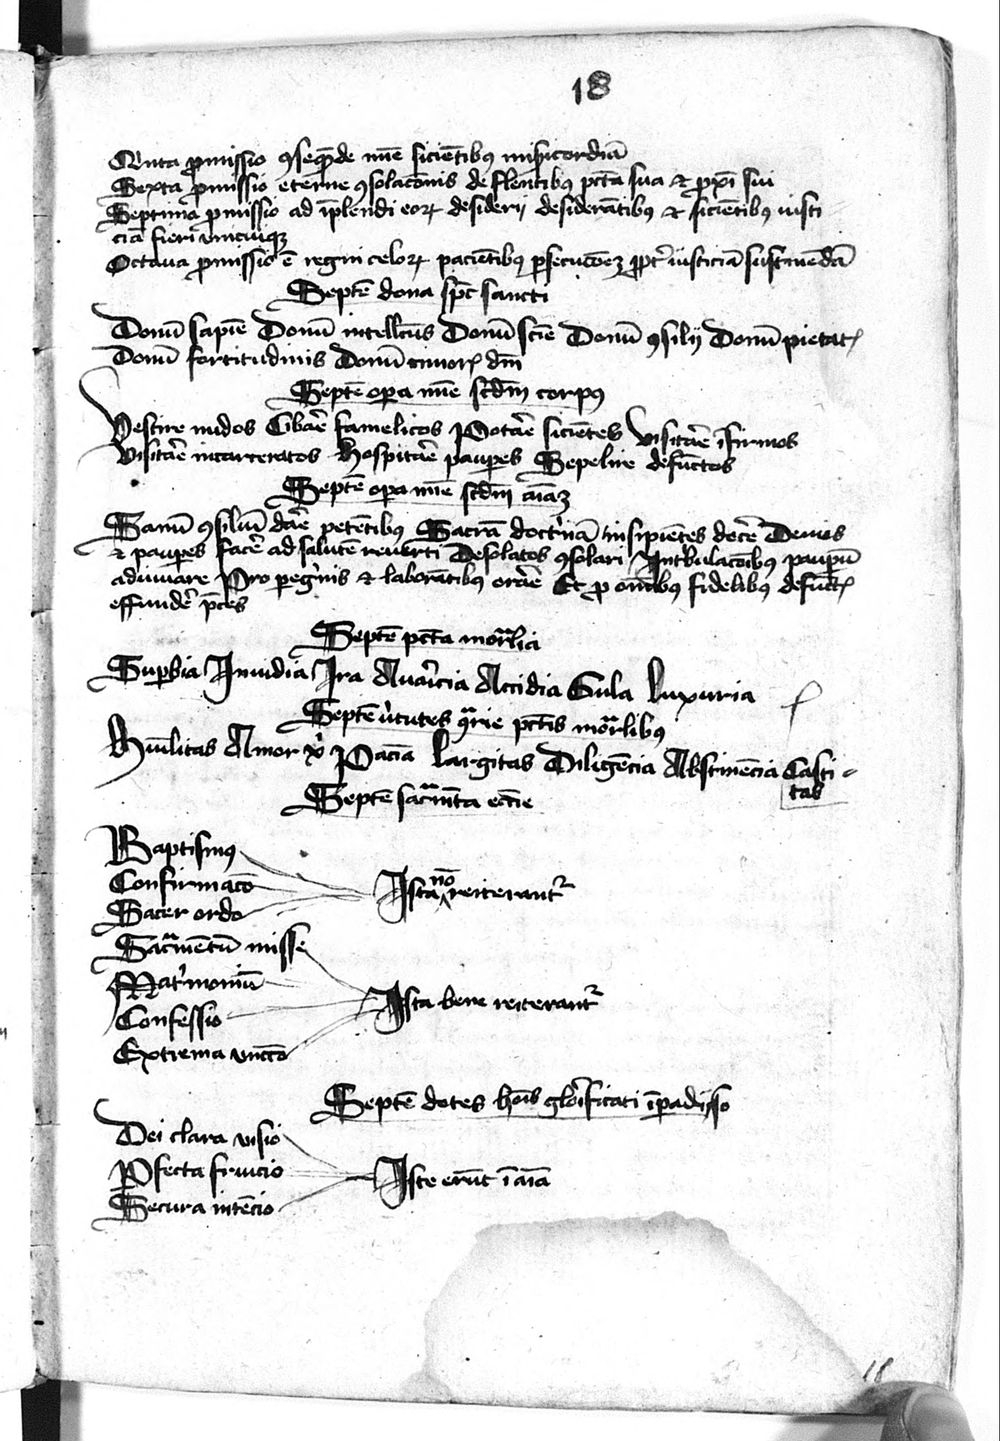 18
Qui͞ta ꝓmissio ꝯseqͣ͞de mi͞e sicie͞tibꝯ mi͞sicordia͞
Sexta ꝓmissio eterne ꝯsolaco͞nis de fle͞ntibꝯ pct͞a sua ⁊ ꝓxi͞ sui
Septima ꝓmissio ad i͞plendi eoꝝ desiderij desidera͞tibꝯ ⁊ sicie͞tibꝯ iusti
cia͞ fieri vnicuiqꝫ
Octaua ꝓmissio e͞ regni celoꝝ pacie͞tibꝯ ꝑsecuc͞oeꝫ ꝓpt͛ iusticia͞ sustine͞da͞
Septe͞ dona sp͞c sancti
Donu͞ sapie͞ Donu͞ intell͞cus Donu͞ scie͞ Donu͞ ꝯsilij Donu͞ pietatꝭ
Donu͞ fortitudinis Donu͞ timorꝭ dn͞i
Septe͞ oꝑa mi͞e scd͞m corpꝯ
Vestire nudos Ciba͛e famelicos Pota͛e sicie͞tes Visita͛e i͞firmos
Visita͛e incarceratos Hospita͛e pauꝑes Sepelire defu͞ctos
Septe͞ oꝑa mi͞e scd͞m ai͞aꝫ
Sanu͞ ꝯsiliu͞ da͛e pete͞tibꝯ Sacra͞ doct͛na͞ insipie͞tes doce͛ Deuios
⁊ pauꝑes face͛ ad salute͞ reuerti Desolatos ꝯsolari In t͛bulaco͞ibꝯ pauꝑu͞
adiuuare Pro ꝑeg͛nis ⁊ labora͞tibꝯ ora͛e Et ꝓ om͞ibꝯ fidelibꝯ defu͞ctꝭ
effunde͛ p͛ces
Septe͞ pct͞a morͣlia
Suꝑbia Inuidia Ira Auar͛cia Accidia Gula Luxuria
Septe͞ v͛tutes ꝯͣrie pct͞is morͣlibꝯ
Hui͞litas Amor xͥ Pacia͞ Largitas Dilige͞cia Abstine͞cia Casti-
tas
Septe͞ sacͣm͞ta ecc͞ie
Baptismꝯ
Confirmaco͞
Sacer ordo
Ista no͞ reiterant͛
Sacͣme͞tu͞ misse
Mat͛moniu͞
Confessio
Extrema vncc͞o
Ista bene reiterant͛
Septe͞ dotes ho͞is glo͛ificati i͞ padiso
Dei clara visio
Ꝑfecta fruicio
Secura inte͞cio
Iste eru͞t i͞ ai͞a